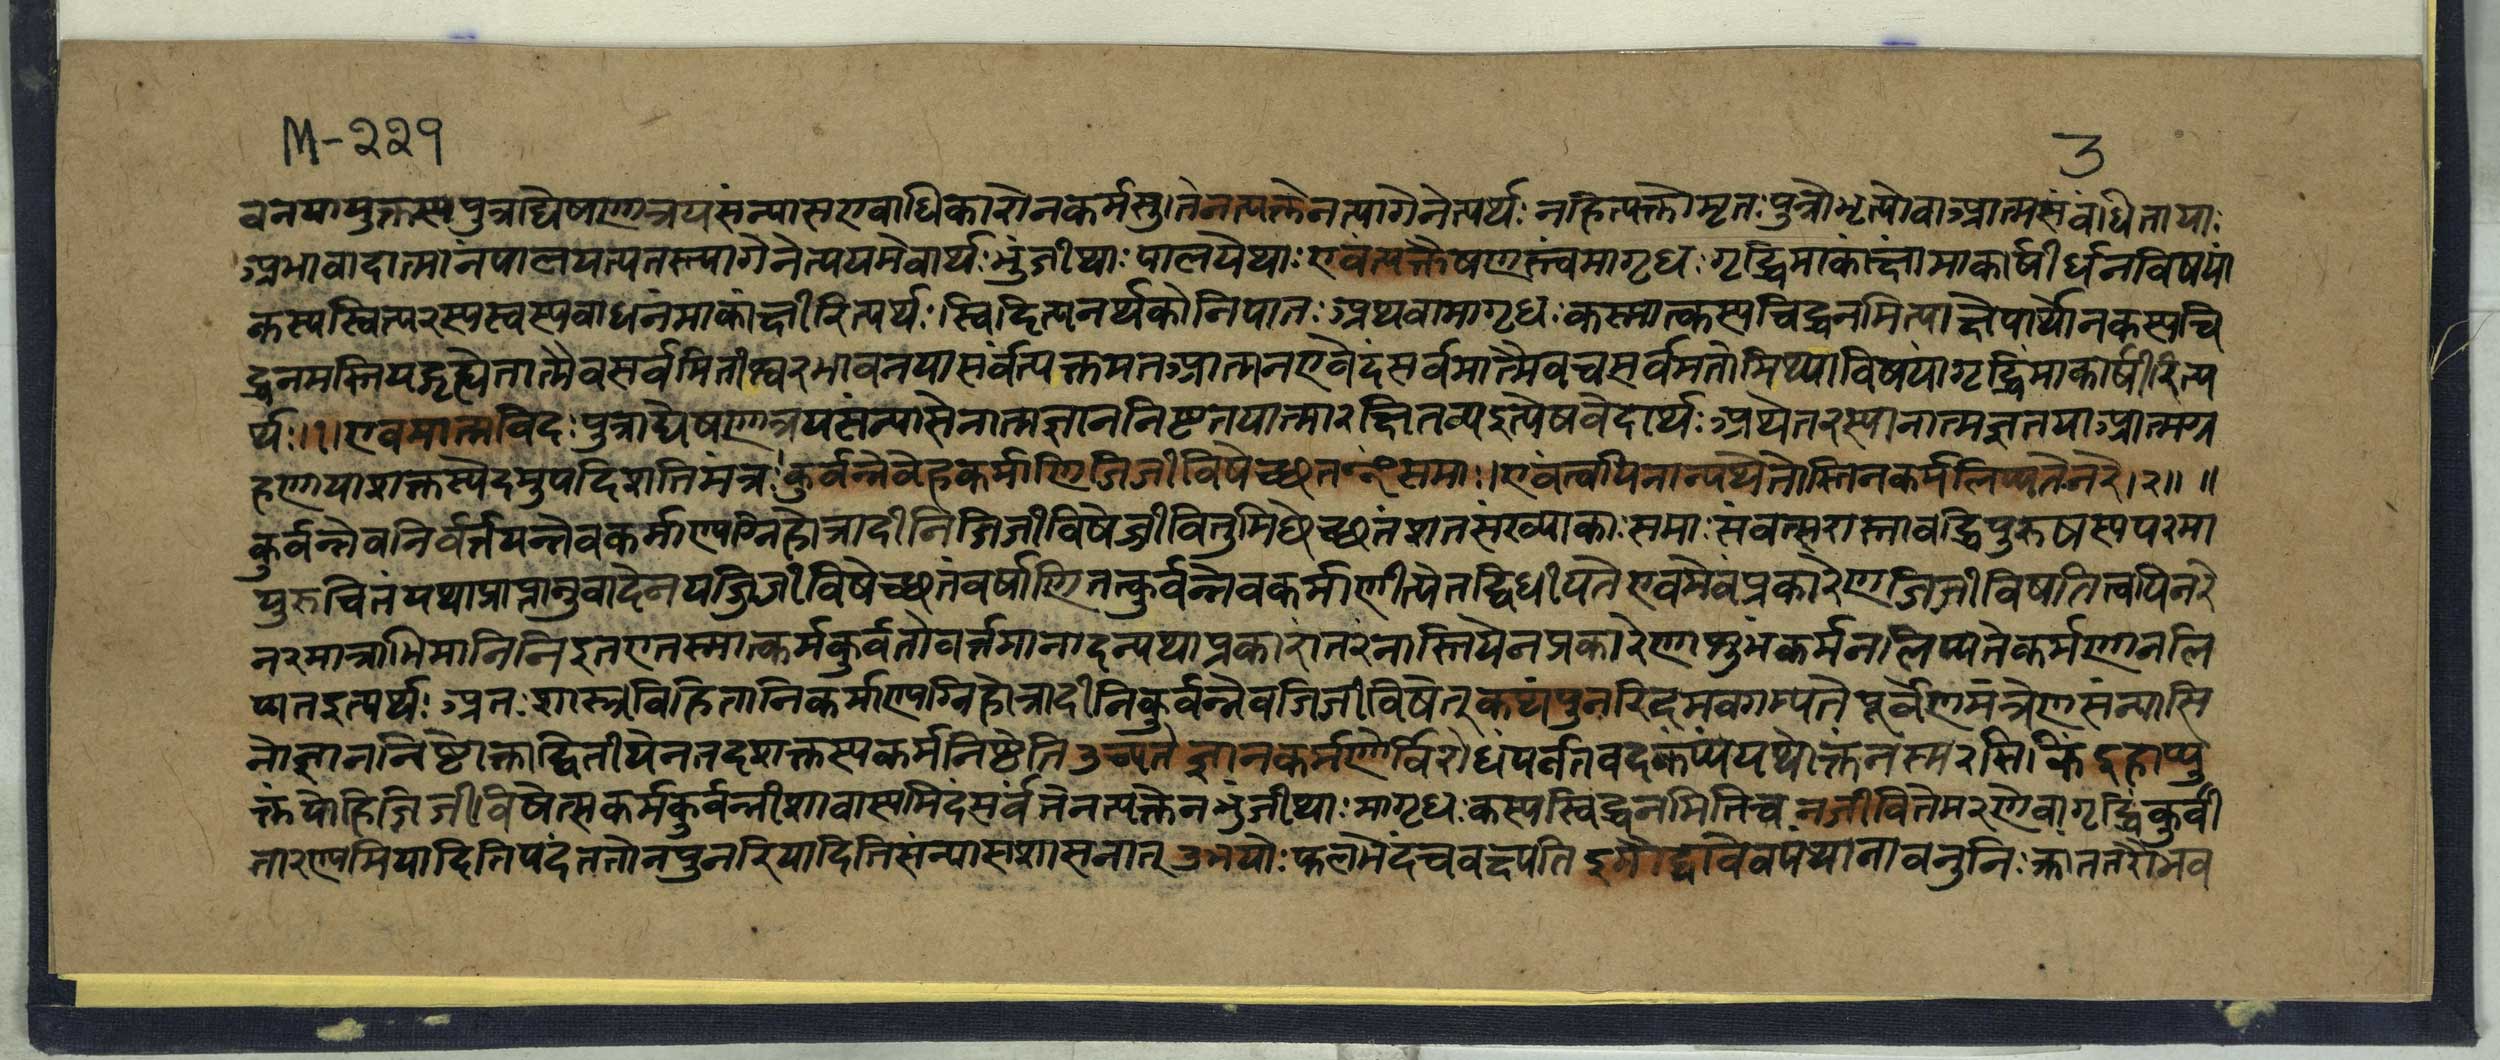 M-२२१
3
वनयायुक्तस्यपुत्राद्येषणात्रयसंन्यासएवाधिकारोनकर्मसु।तेनत्यक्तेनत्यागेनेत्यर्थः नहित्यक्तोमृतःपुत्रोभृत्योवाआत्मसंबंधितायाः
अभावादात्मानंपालयत्यतस्त्यागेनेत्ययमेवार्थःभुंजीथाःपालयेथाःएवंत्यक्तैषणत्स्वंमागृधःगृद्धिमाकांक्षांमाकार्षीर्धनविषयां
कस्यस्वित्परस्यस्वस्यवाधनंमाकांक्षीरित्यर्थः।स्विदित्यनर्थकोनिपातःअथवामागृधःकस्मात्कस्यचिद्धनमित्याक्षेपार्थोनकस्यचि
द्धनमस्तियद्गृह्येतात्मैवसर्वमितीश्वरभावनयासर्वंत्यक्तमतआत्मनएवेदंसर्वमात्मैवचसर्वमतोमिथ्याविषयांगृद्धिंमाकार्षीरित्य
र्थः।।१।एवमात्मविदःपुत्राद्येषणात्रयसंन्यासेनात्मज्ञाननिष्टतयात्मारक्षितव्यइत्येषवेदार्थःअथेतरस्यानात्मज्ञतयाआत्मग्र
हणायाशक्तस्येदमुपदिशतिमंत्रः।कुर्वन्नेवेहकर्माणिजिजीविषेच्छतꣳसमाः।एवंत्वयिनान्यथेतोस्तिनकर्मलिप्यतेनरे।२॥ ॥
कुर्वन्नेवनिर्वर्त्तयन्नेवकर्माण्यग्निहोत्रादीनिजिजीविषेज्जीवितुमिच्छेच्छतंशतसंख्याकाःसमाःसंवत्सरास्तावद्धिपुरुषस्यपरमा
युरुचितंयथाप्राप्तानुवादेनयज्जिजीविषेच्छतंवर्षाणितत्कुर्वन्नेवकर्माणीत्येतद्विधीयतेएवमेवंप्रकारेणजिजीविषतित्वयिनरे
नरमात्राभिमानिनिइतएतस्मात्कर्मकुर्वतोवर्त्तमानादन्यथाप्रकारांतरंनास्तियेनप्रकारेणाशुभंकर्मनलिप्यतेकर्मणानलि
प्यतइत्यर्थःअतःशास्त्रविहितानिकर्माण्यग्निहोत्रादीनिकुर्वन्नेवजिजीविषेत्कथंपुनरिदमवगम्यतेपूर्वेणमंत्रेणसंन्यासि
नोज्ञाननिष्टोक्ताद्वितीयेनतदशक्तस्यकर्मनिष्ठेतिउच्यतेज्ञानकर्मणोर्विरोधंपर्वतवदकंप्यंयथोक्तंनस्मरसिकिंइहाप्यु
क्तंयोहिजिजीविषेत्सकर्मकुर्वन्नीशावास्यमिदंसर्वंतेनत्यक्तेनभुंजीथाःमागृधःकस्यस्विद्धनमितिचनजीवितेमरणेवागृद्धिंकुर्वी
तारण्यमियादितिपदंततोनपुनरियादितिसंन्यासशासनात्उभयोःफलभेदंचवक्ष्यतिइमौद्वावेवपंथानावनुनिःक्रांततरौभव